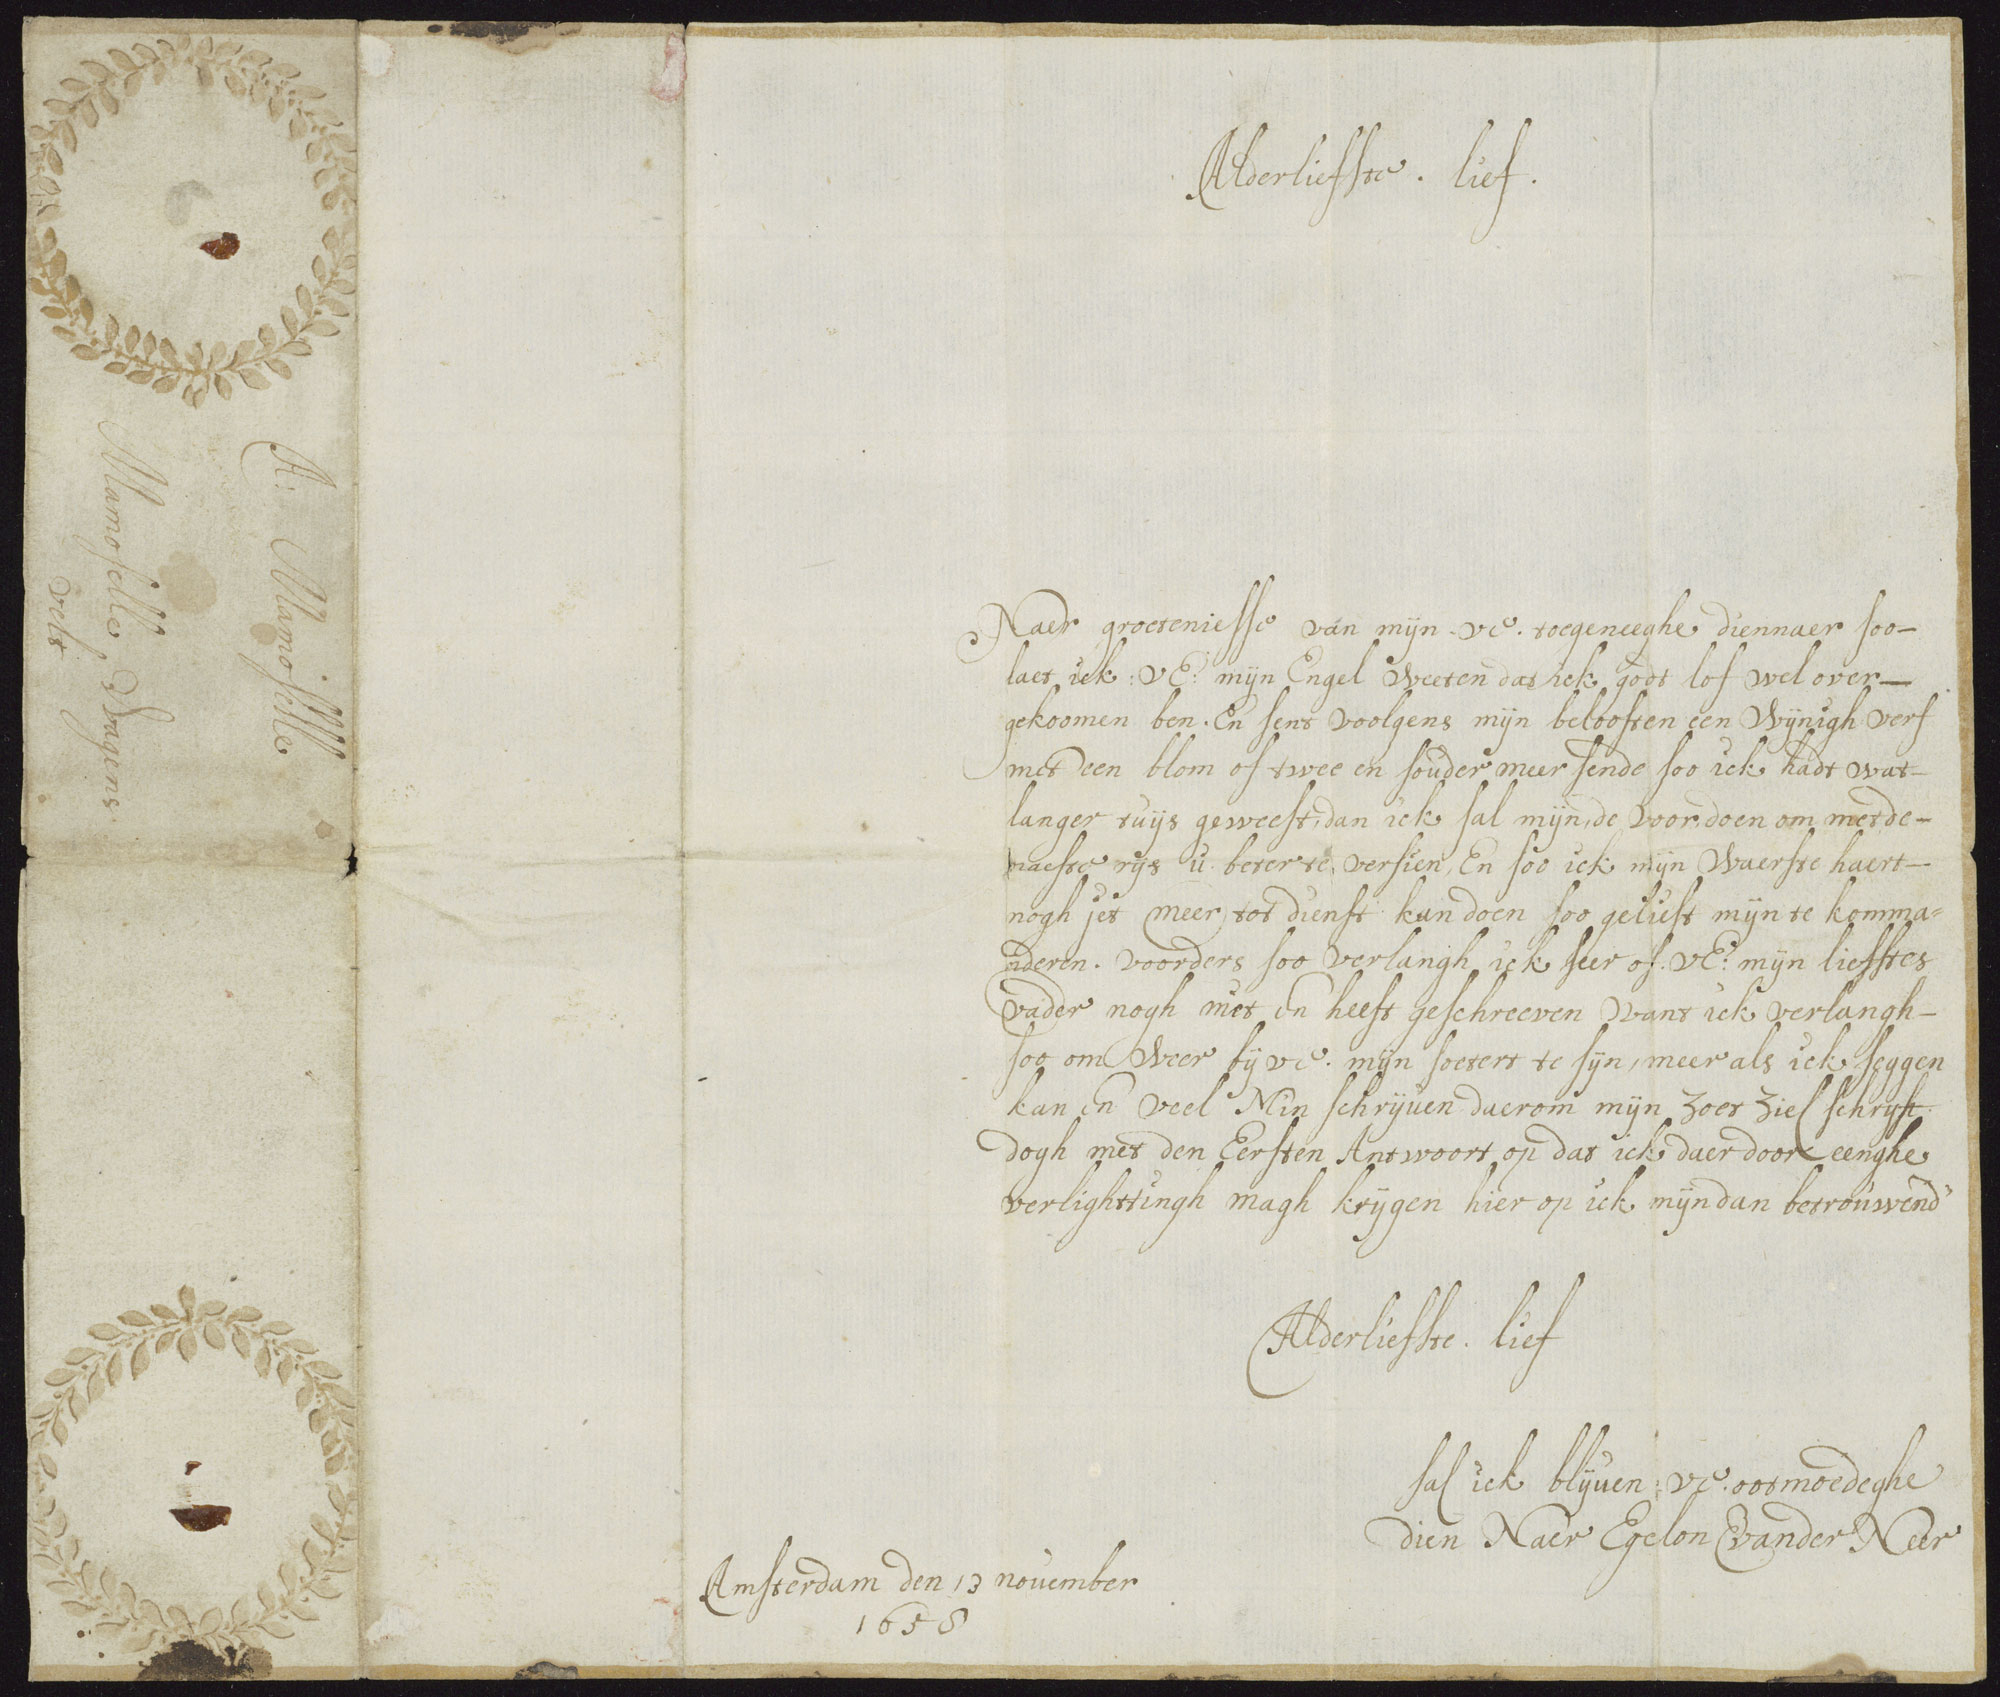 Alderliefste. lief.
Naer groeteniesse van mijn. ve. toegeneeghe diennaer soo-
laet ick: VE: mijn Engel weeten dat ick godt lof wel over-
gekoomen ben. En sent voolgens mijn belooften een wijnigh verf
met een blom of twee en souder meer sende soo ick hadt wat-
langer tuijs geweest, dan ick sal mijn, de voor, doen om met de-
naeste rijs u. beter te versien, En soo ick mijn waerste haert-
nogh jet meer tot dienst kan doen soo gelieft mijn te komma=
nderen. voorders soo verlangh ick seer of. VE: mijn liefstes
vader nogh niet en heeft geschreeven want ick verlangh-
soo om weer bij ve. mijn soetert te sijn, meer als ick seggen
kan en veel Min schrijven daerom mijn zoet ziel schrijft
dogh met den Eersten Antwoort op dat ick daer door eenghe
verlightingh magh krijgen hier op ick mijn dan betrouwend
Alderliefste. lief
sal ick blijven: ve. ootmoedeghe
dien Naer Egelon vander Neer
Amsterdam den 13 november
1658
A: Mamoselle
Mamoselle Wagens
velt